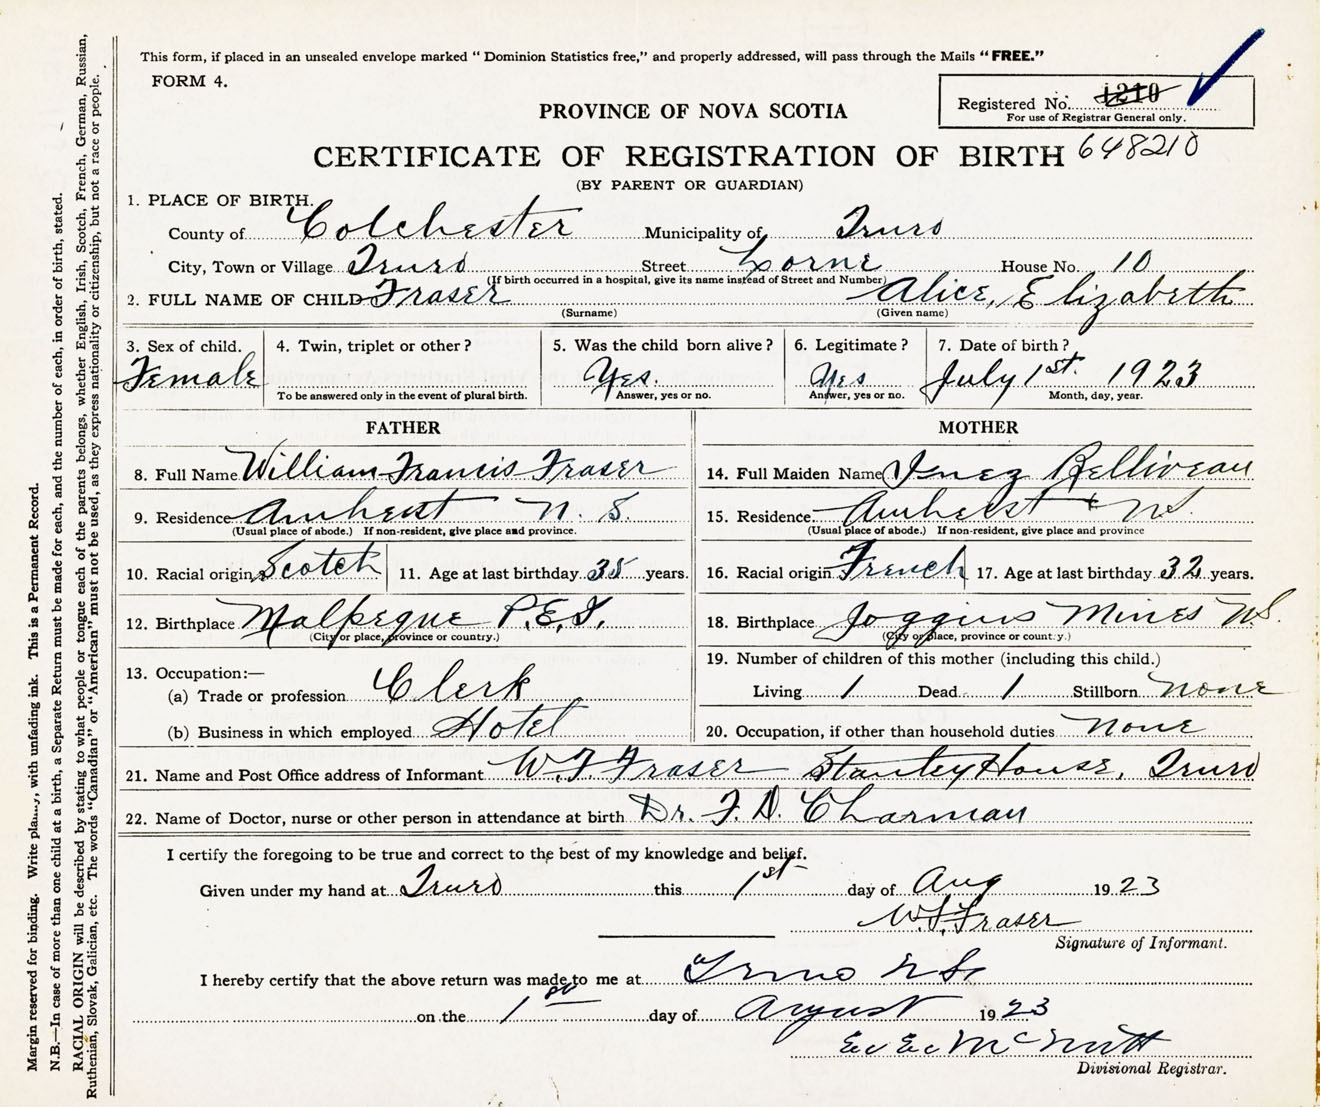 This form, if placed in an unsealed envelope marked “ Dominion Statistics free,” and properly addressed, will pass through the Mails “ FREE.”
FORM 4.
Registered No. 1210
For use of Registrar General only.
PROVINCE OF NOVA SCOTIA
CERTIFICATE OF REGISTRATION OF BIRTH 648210
(BY PARENT OR GUARDIAN)
1. PLACE OF BIRTH.
County of Colchester Municipality of Truro
City, Town or Village Truro Street Lorne House No. 10
(If birth occurred in a hospital, give its name instead of Street and Number)
2. FULL NAME OF CHILD Fraser Alice, Elizabeth
(Surname) (Given name)
3. Sex of child. 4. Twin, triplet or other? 5. Was the child born alive? 6. Legitimate? 7. Date of birth?
Female Yes. Yes July 1st. 1923
To be answered only in the event of plural birth. Answer, yes or no. Answer, yes or no. Month, day, year.
FATHER MOTHER
8. Full Name William Francis Fraser 14. Full Maiden Name Inez Belliveau
9. Residence Amherst N. S. 15. Residence Amherst N.S.
(Usual place of abode.) If non-resident, give place and province. (Usual place of abode.) If non-resident, give place and province
10. Racial origin Scotch 11. Age at last birthday years. 16. Racial origin French 17. Age at last birthday 32 years.
12. Birthplace Malpeque P.E.I. 18. Birthplace Joggins Mines N.S.
(City or place, province or country.) (City or place, province or country.)
13. Occupation:— 19. Number of children of this mother (including this child.)
(a) Trade or profession Clerk Living 1 Dead 1 Stillborn none
(b) Business in which employed Hotel 20. Occupation, if other than household duties none
21. Name and Post Office address of Informant W.F. Fraser Stanley House, Truro
22. Name of Doctor, nurse or other person in attendance at birth Dr. F. D. Charman
I certify the foregoing to be true and correct to the best of my knowledge and belief.
Given under my hand at Truro this 1st day of Aug 1923
W.F. Fraser
Signature of Informant.
I hereby certify that the above return was made to me at Truro N S.
on the 1st day of August 1923
McNutt
Divisional Registrar.
Margin reserved for binding. Write with unfading ink. This is a Permanent Record.
N.B.—In case of more than one child at a birth, a Separate Return must be made for each, and the number of each, in order of birth, stated.
RACIAL ORIGIN will be described by stating to what people or tongue each of the parents belongs, whether English, Irish, Scotch, French, German, Russian,
Ruthenian, Slovak, Galician, etc. The words “Canadian” or “American” must not be used, as they express nationality or citizenship, but not a race or people.